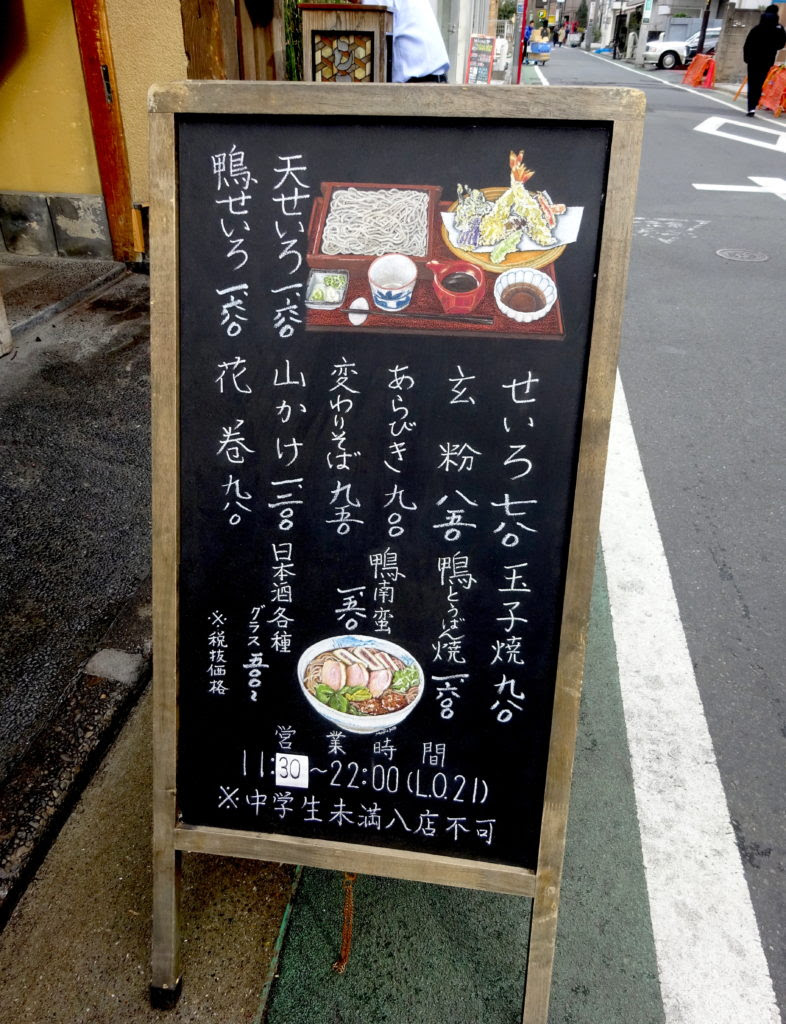 天せいろ 一、六〇〇
鴨せいろ 一、六〇〇
せいろ 七八〇
玄粉 八五〇
あらびき 九〇〇
変わりそば 九五〇
山かけ 一、二〇〇
花巻 九八〇
玉子焼 九八〇
鴨とうばん焼 一、六〇〇
鴨南蛮
一、六五〇
日本酒各種
グラス 五〇〇〜
※税抜価格
営業時間
11:30〜22:00(L.O.21)
※中学生未満入店不可